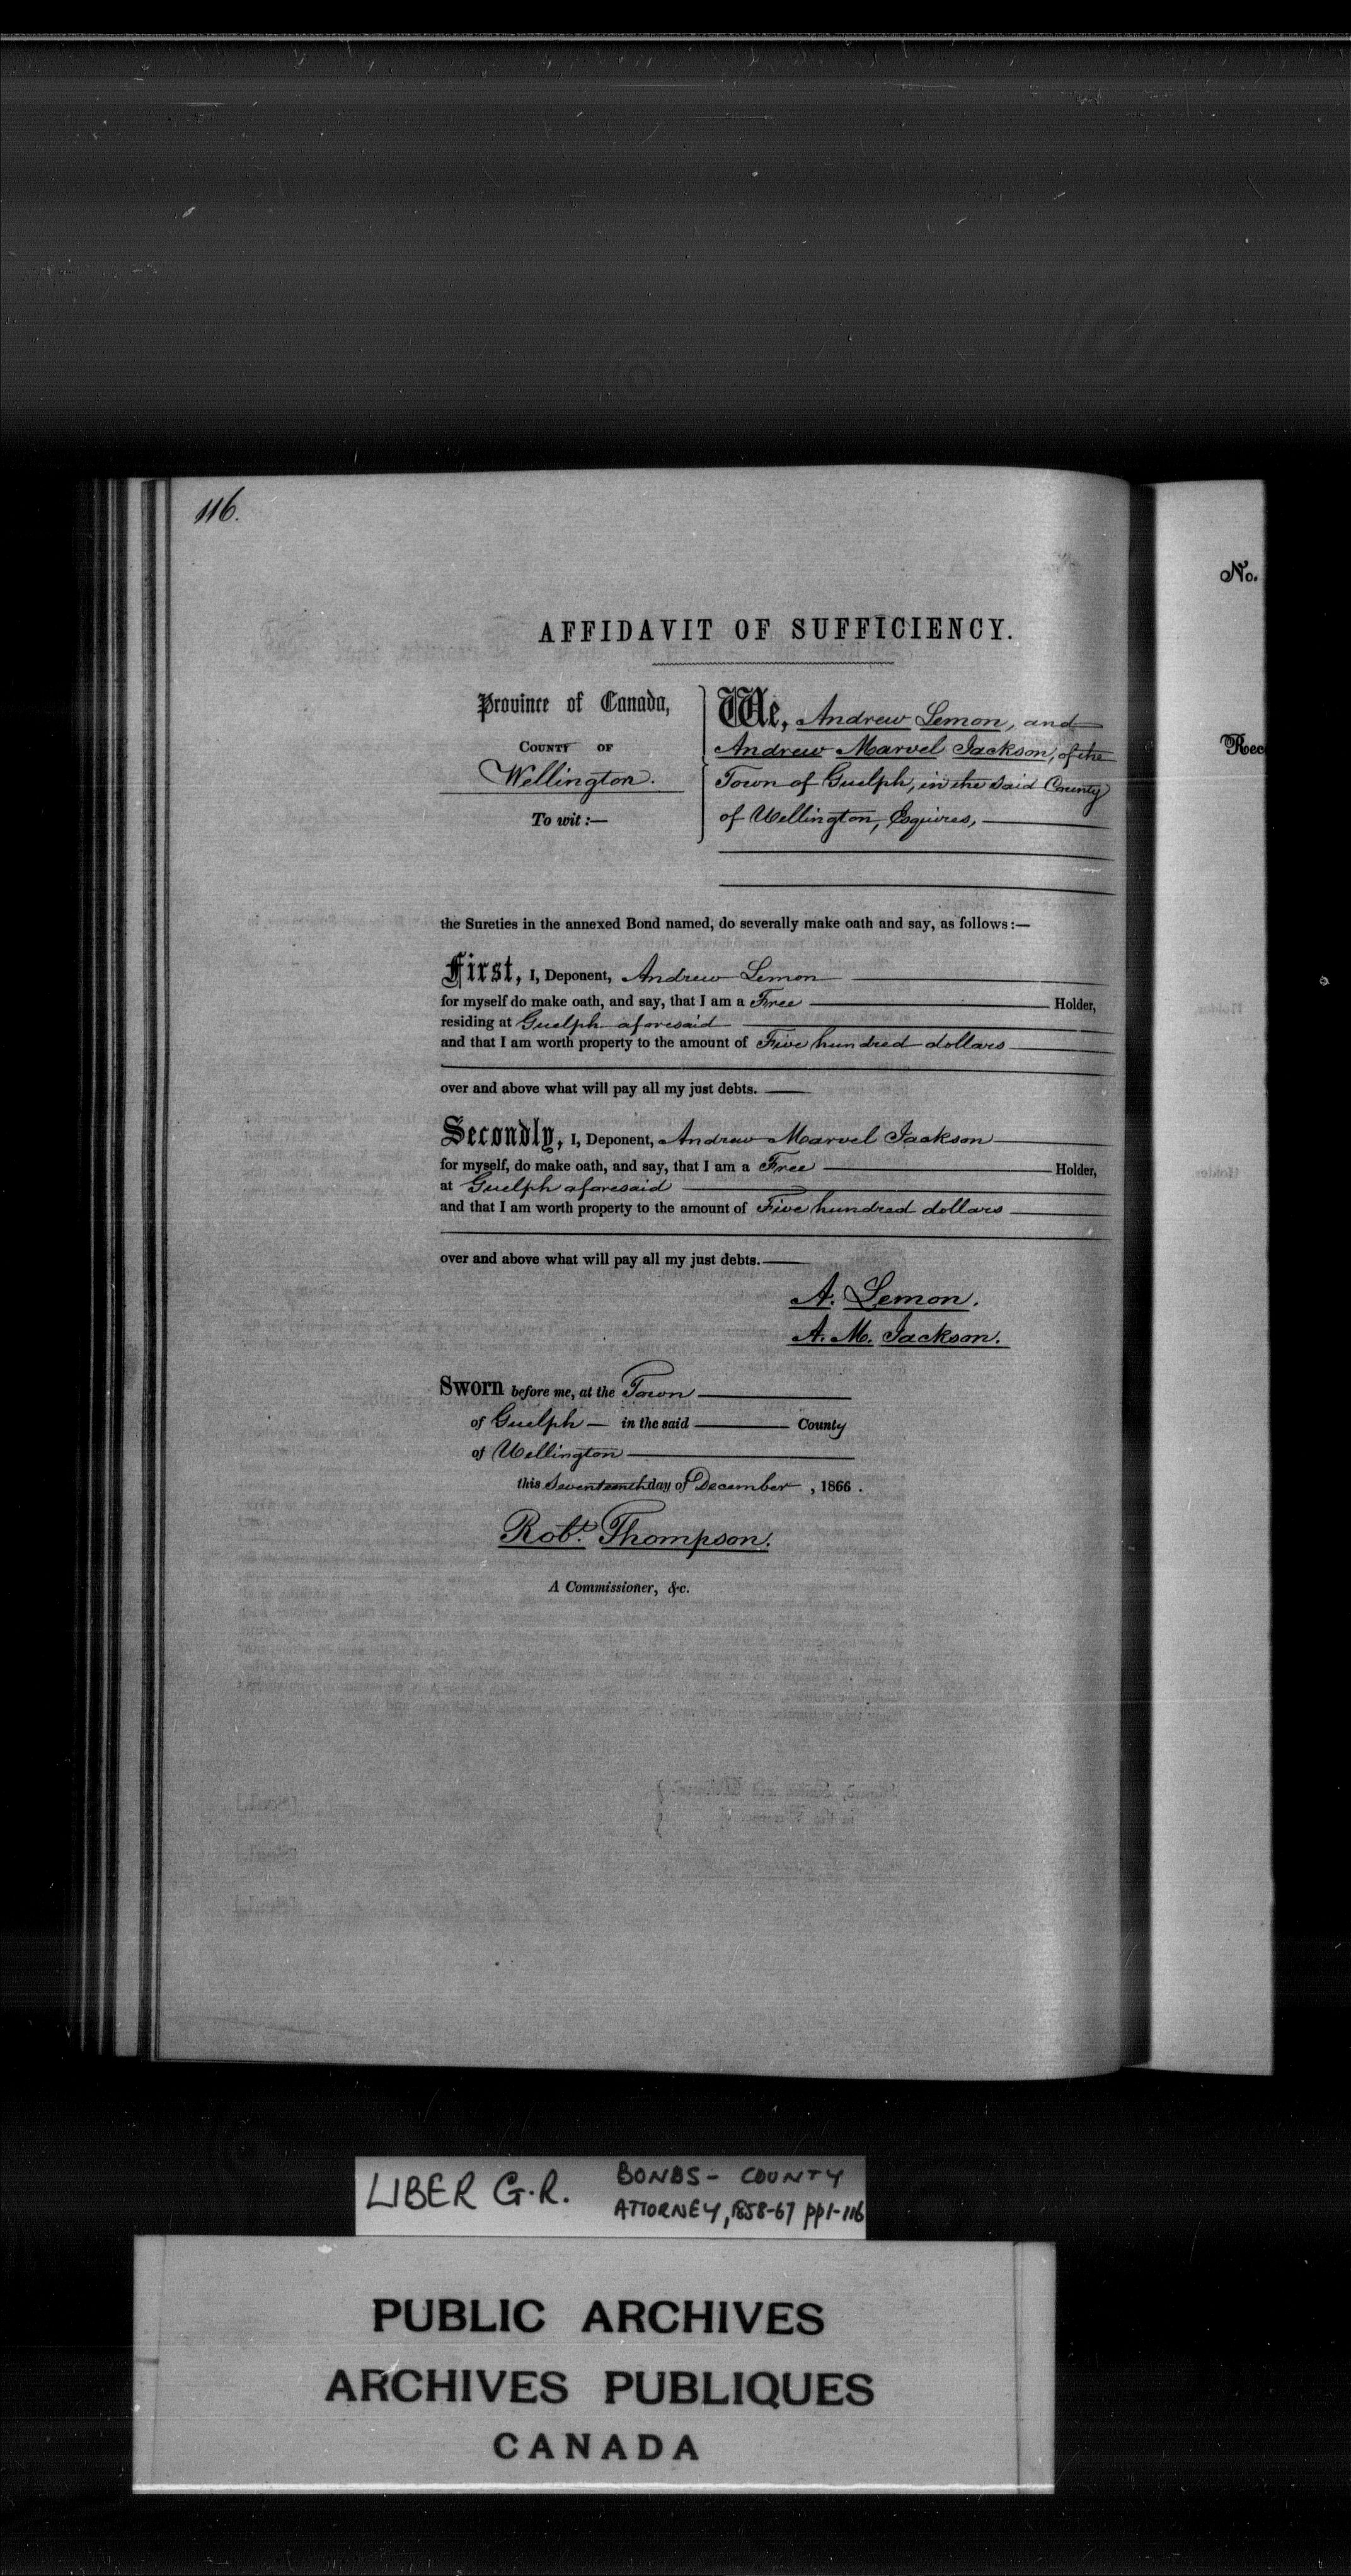 116.
No.
AFFIDAVIT OF SUFFICIENCY.
Province of Canada,
COUNTY OF
Wellington.
To wit :—
We, Andrew Lemon, and
Andrew Marvel Jackson, of the
Town of Guelph, in the said County
of Wellington, Esquires,
Rec
the Sureties in the annexed Bond named, do severally make oath and say, as follows :—
First, I, Deponent, Andrew Lemon
for myself do make oath, and say, that I am a Free Holder,
residing at Guelph aforesaid
and that I am worth property to the amount of Five hundred dollars
over and above what will pay all my just debts.
Secondly, I, Deponent, Andrew Marvel Jackson
for myself, do make oath, and say, that I am a Free Holder,
at Guelph aforesaid
and that I am worth property to the amount of Five hundred dollars
over and above what will pay all my just debts.
A. Lemon.
A. M. Jackson.
Sworn before me, at the Town
of Guelph — in the said County
of Wellington
this Seventeenth day of December, 1866.
Robt. Thompson.
A Commissioner, &c.
LIBER G.R. BONDS - COUNTY
ATTORNEY, 1858-67 pp1-116
PUBLIC ARCHIVES
ARCHIVES PUBLIQUES
CANADA